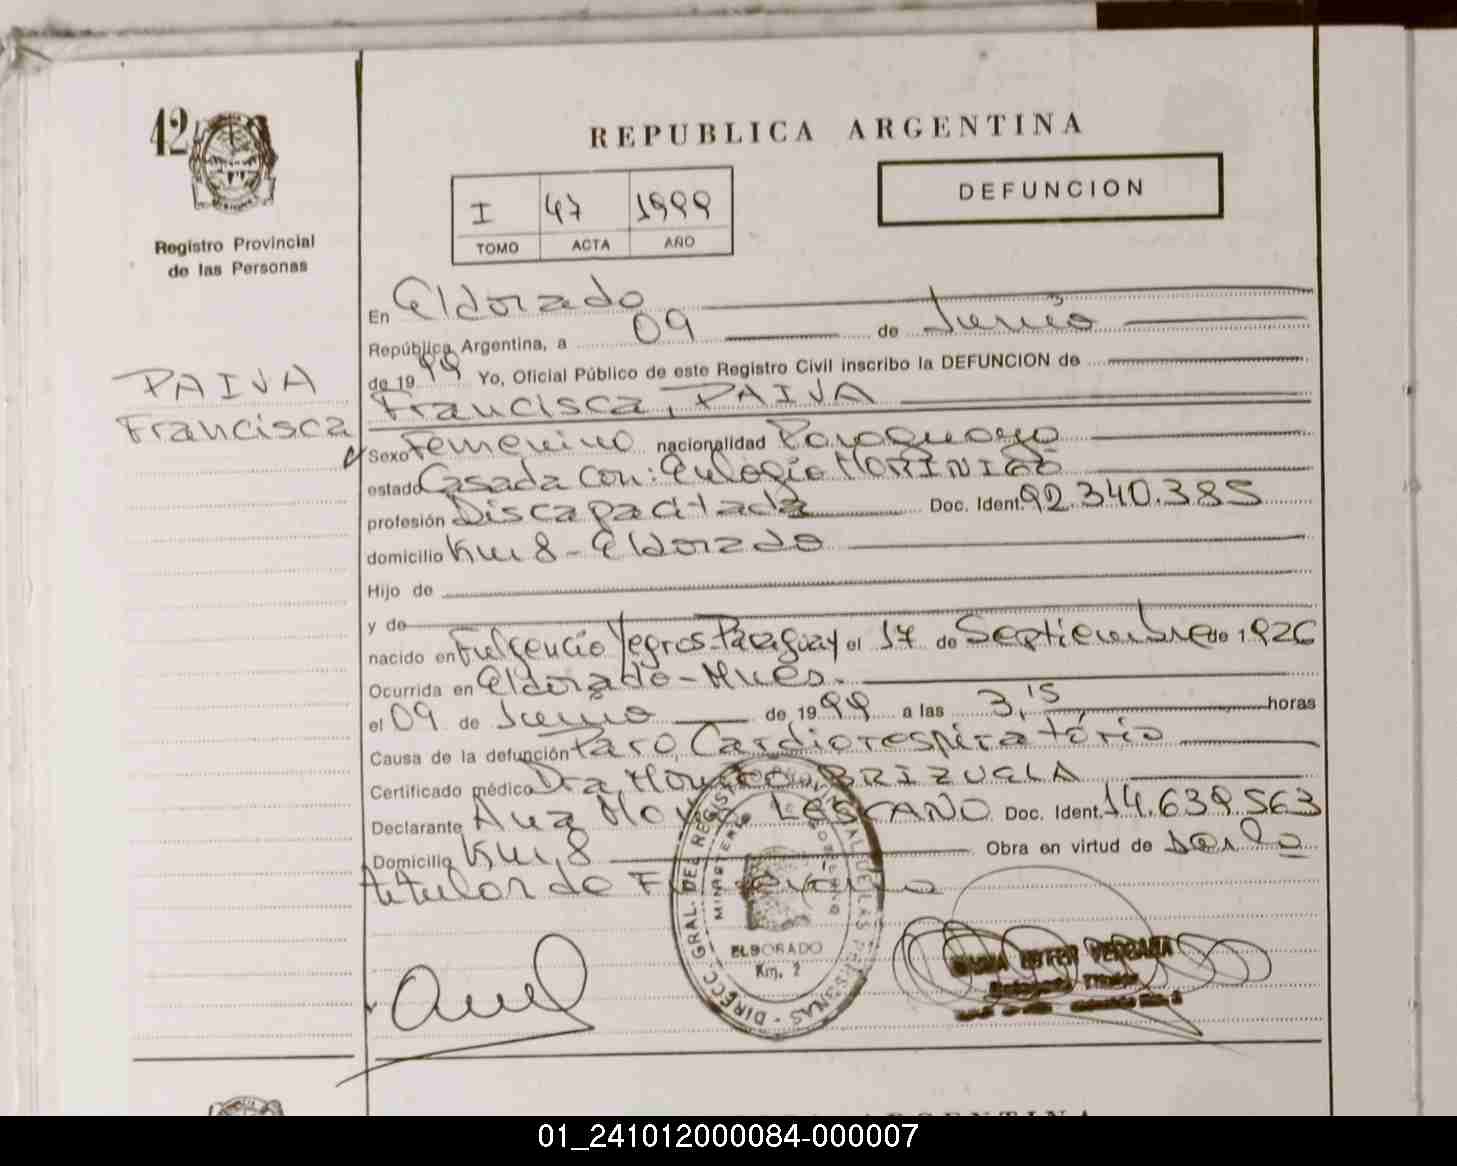 42
REPUBLICA ARGENTINA
DEFUNCION
I 47 1999
TOMO ACTA AÑO
Registro Provincial
de las Personas
PAIVA
Francisca
En Eldorado
República Argentina, a 09 de Junio
de 1999 Yo, Oficial Público de este Registro Civil inscribo la DEFUNCION de
Francisca, PAIVA
Sexo Femenino nacionalidad Paraguaya
estado Casada con: Eulogio MORINIGO
profesión Discapacitada Doc. Ident. 92.340.385
domicilio Km 8 - Eldorado
Hijo de
y de
nacido en Fulgencio Yegros-Paraguay el 17 de Septiembre de 1926
Ocurrida en Eldorado - Mnes.
el 09 de Junio de 1999 a las 3,15 horas
Causa de la defunción Paro Cardiorespiratório
Certificado médico Dra, BRIZUELA
Declarante Ana LESCANO Doc. Ident. 14.639.563
Domicilio Km, 8 Obra en virtud de
titular de
DIRECC. GRAL. DEL REGISTRO PROVINCIAL DE LAS PERSONAS
MINISTERIO GOBIERNO
ELDORADO
Km. 2
VERGARA
REPUBLICA ARGENTINA
01_241012000084-000007